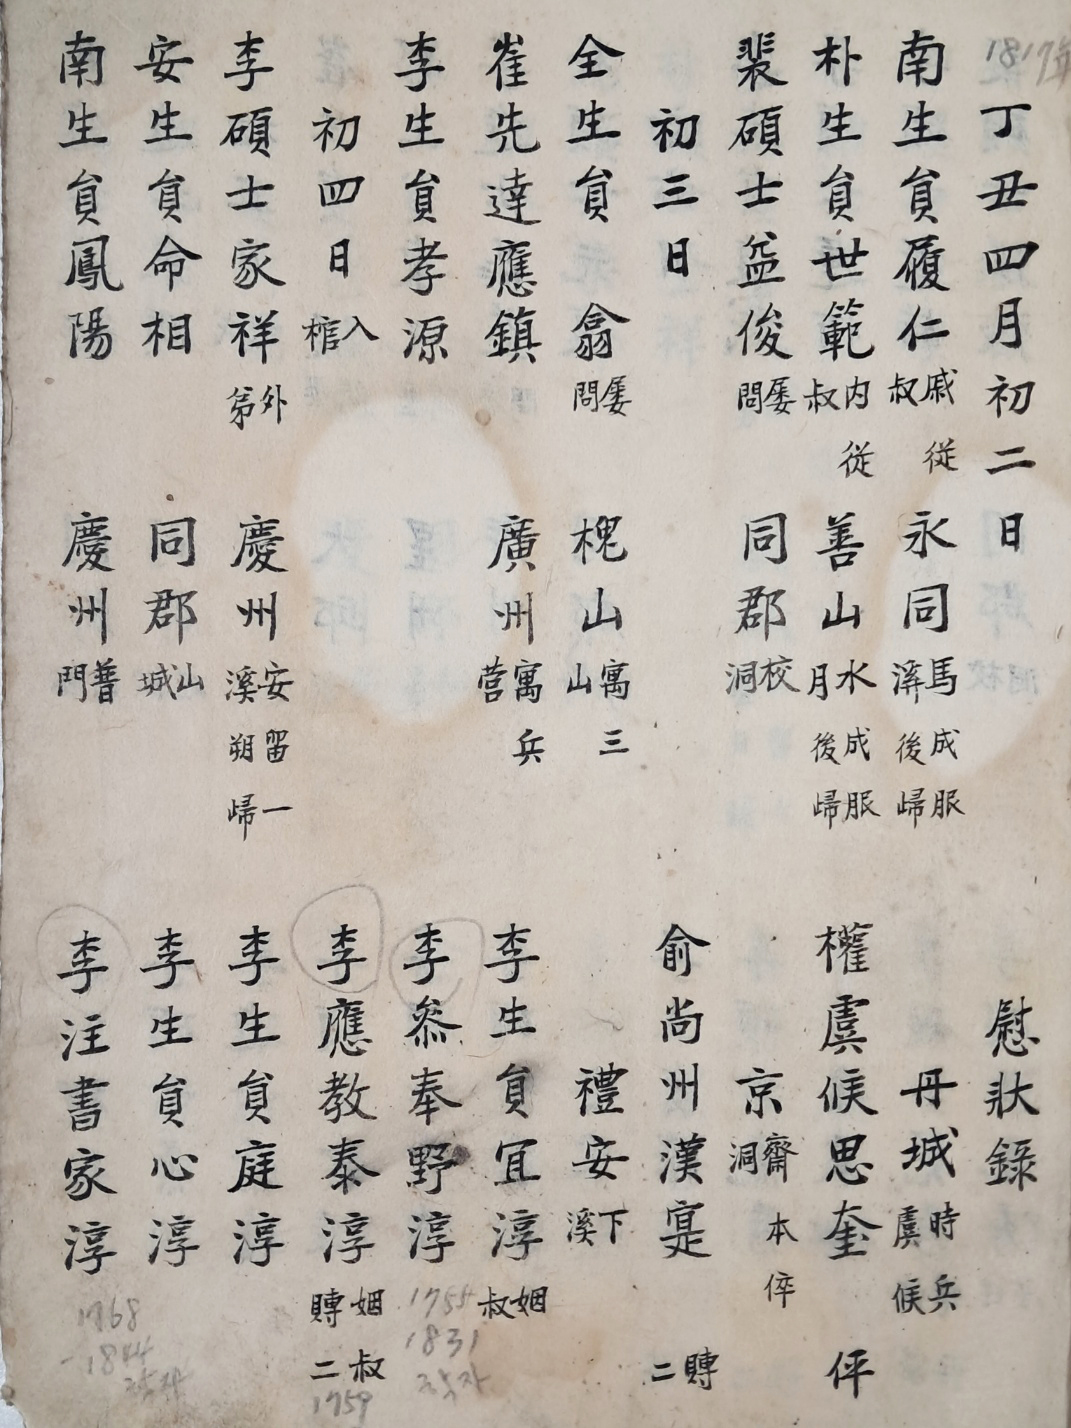 1817年
丁丑四月初二日
慰狀錄
南生員履仁 戚從叔
永同 馬澤 成服後歸
丹城 時兵虞候
朴生員世範 內從叔
善山 水月 成服後歸
權虞候思奎 伻
裴碩士益俊 屡問
同郡 校洞
京 齋洞 本倅
初三日
俞尚州漢寔 賻二
全生員 翕 屡問
槐山 寓三山
禮安 下溪
崔先達應鎮
廣州 寓兵营
李生員宜淳 姻叔
李生員孝源
李叅奉野淳
1755
1831
初四日 入棺
李應教泰淳 姻叔 賻二
1759
李碩士家祥 外弟
慶州 安溪 留一朔歸
李生員庭淳
安生員命相
同郡 山城
李生員心淳
南生員鳳陽
慶州 普門
李注書家淳
1768
1844